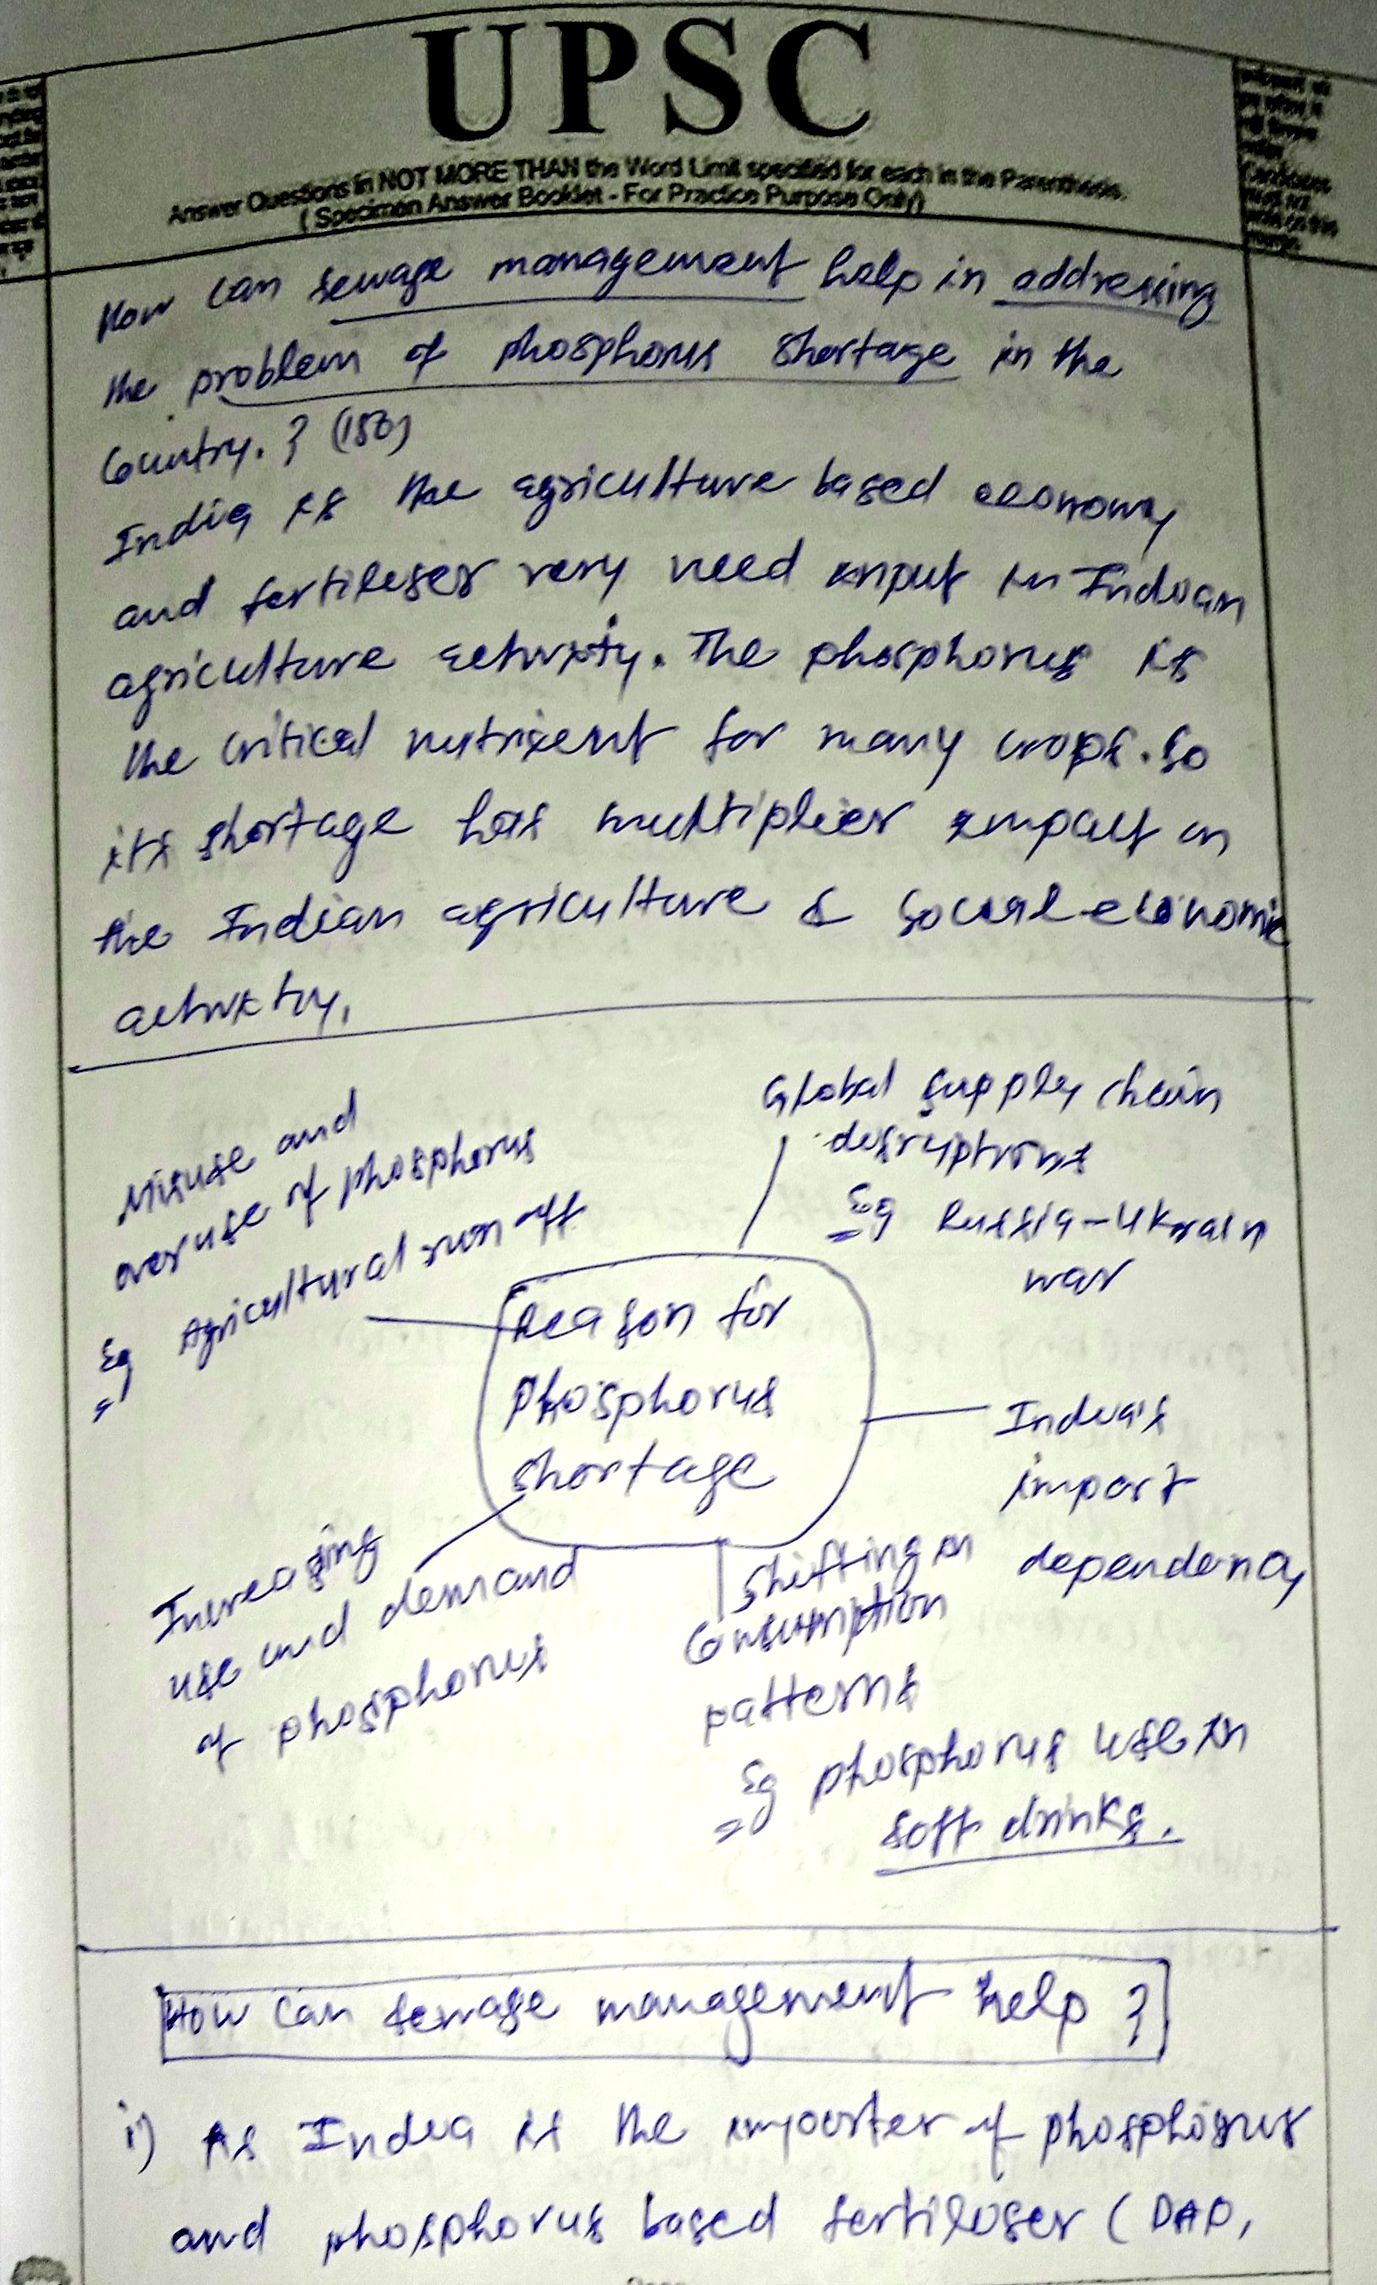 UPSC
Answer Questions in NOT MORE THAN the Word Limit specified for each in the Parenthesis.
( Specimen Answer Booklet - For Practice Purpose Only)
How can sewage management help in addressing
the problem of phosphorus shortage in the
Country. ? (150)
India is the agriculture based economy
and fertileser very need input in Indian
agriculture activity. The phosphorus is
the critical nutrient for many crops. So
its shortage has multiplier impact on
the Indian agriculture & social-economic
activity.
Global supply chain
disruptions
Eg Russia-Ukrain
war
Misuse and
overuse of phosphorus
Eg Agricultural run off
Reason for
phosphorus
shortage
India's
import
dependency
Increasing
use and demand
of phosphorus
Shifting in
Consumption
patterns
Eg phosphorus use in
soft drinks.
How can sewage management help ?
i) As India is the importer of phosphorus
and phosphorus based fertiliser ( DAP,